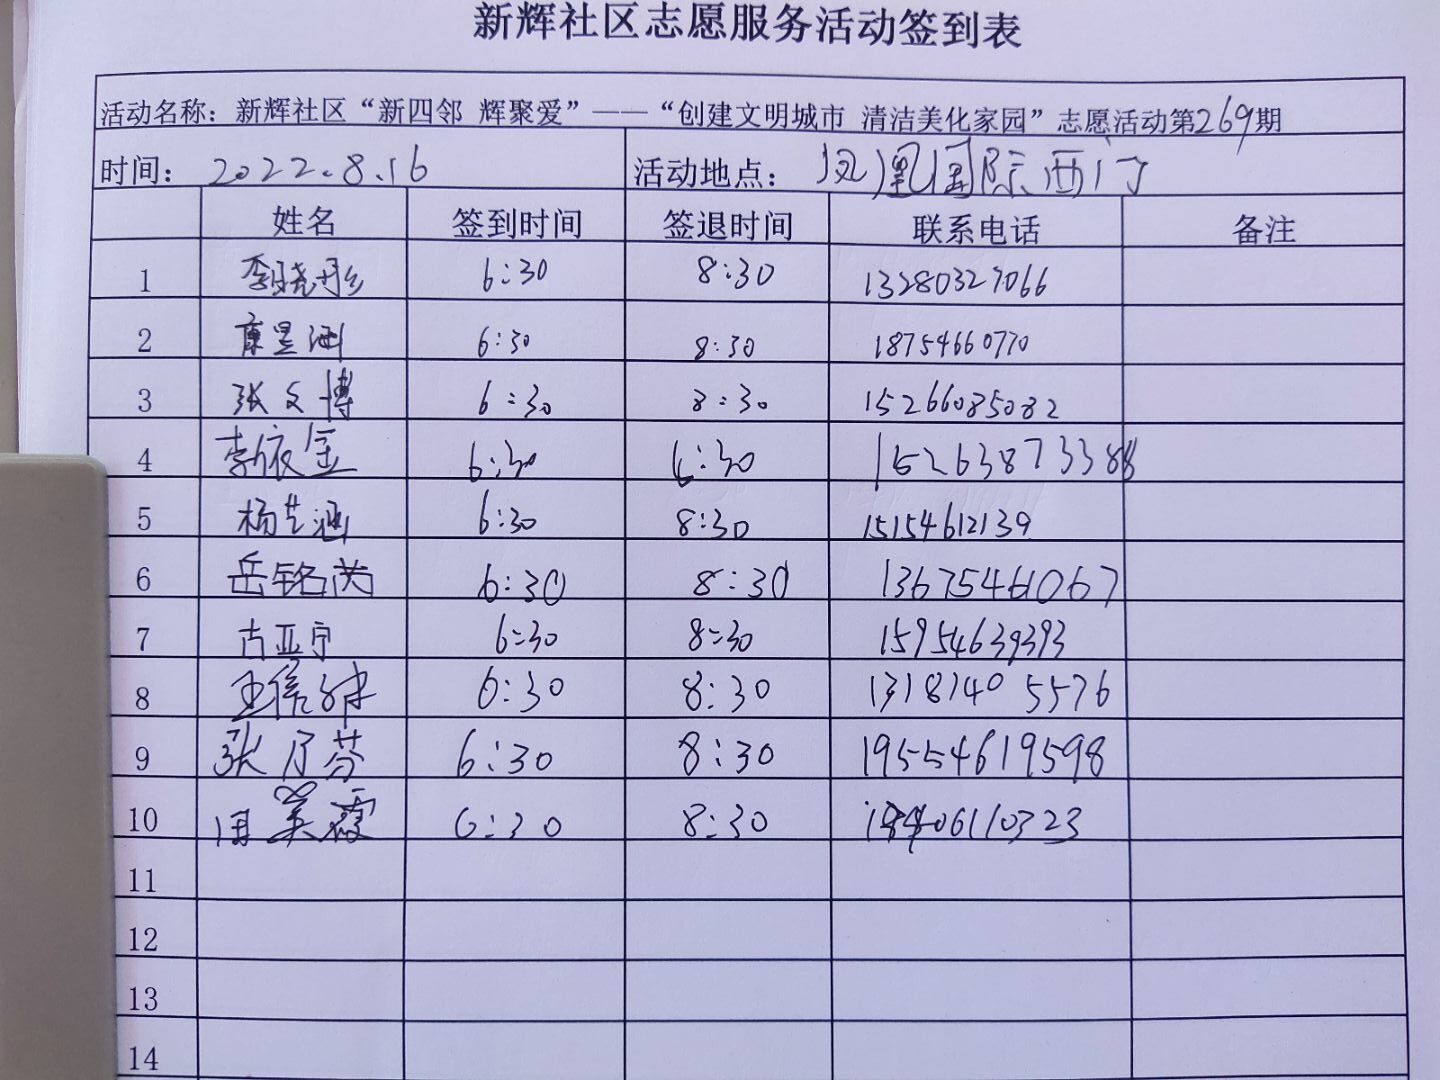 新辉社区志愿服务活动签到表
活动名称：新辉社区“新四邻 辉聚爱”——“创建文明城市 清洁美化家园”志愿活动第269期
时间：2022.8.16 活动地点：凤凰国际西门
姓名 签到时间 签退时间 联系电话 备注
1 李晓彤 6:30 8:30 13280327066
2 康昱洲 6:30 8:30 18754660770
3 张文博 6:30 8:30 15266085082
4 李依金 6:30 6:30 15263873388
5 杨艺涵 6:30 8:30 15154612139
6 岳铭芮 6:30 8:30 13675461067
7 古亚宁 6:30 8:30 15954639393
8 6:30 8:30 13181405576
9 张月芬 6:30 8:30 19554619598
10 周美霞 6:30 8:30
11
12
13
14